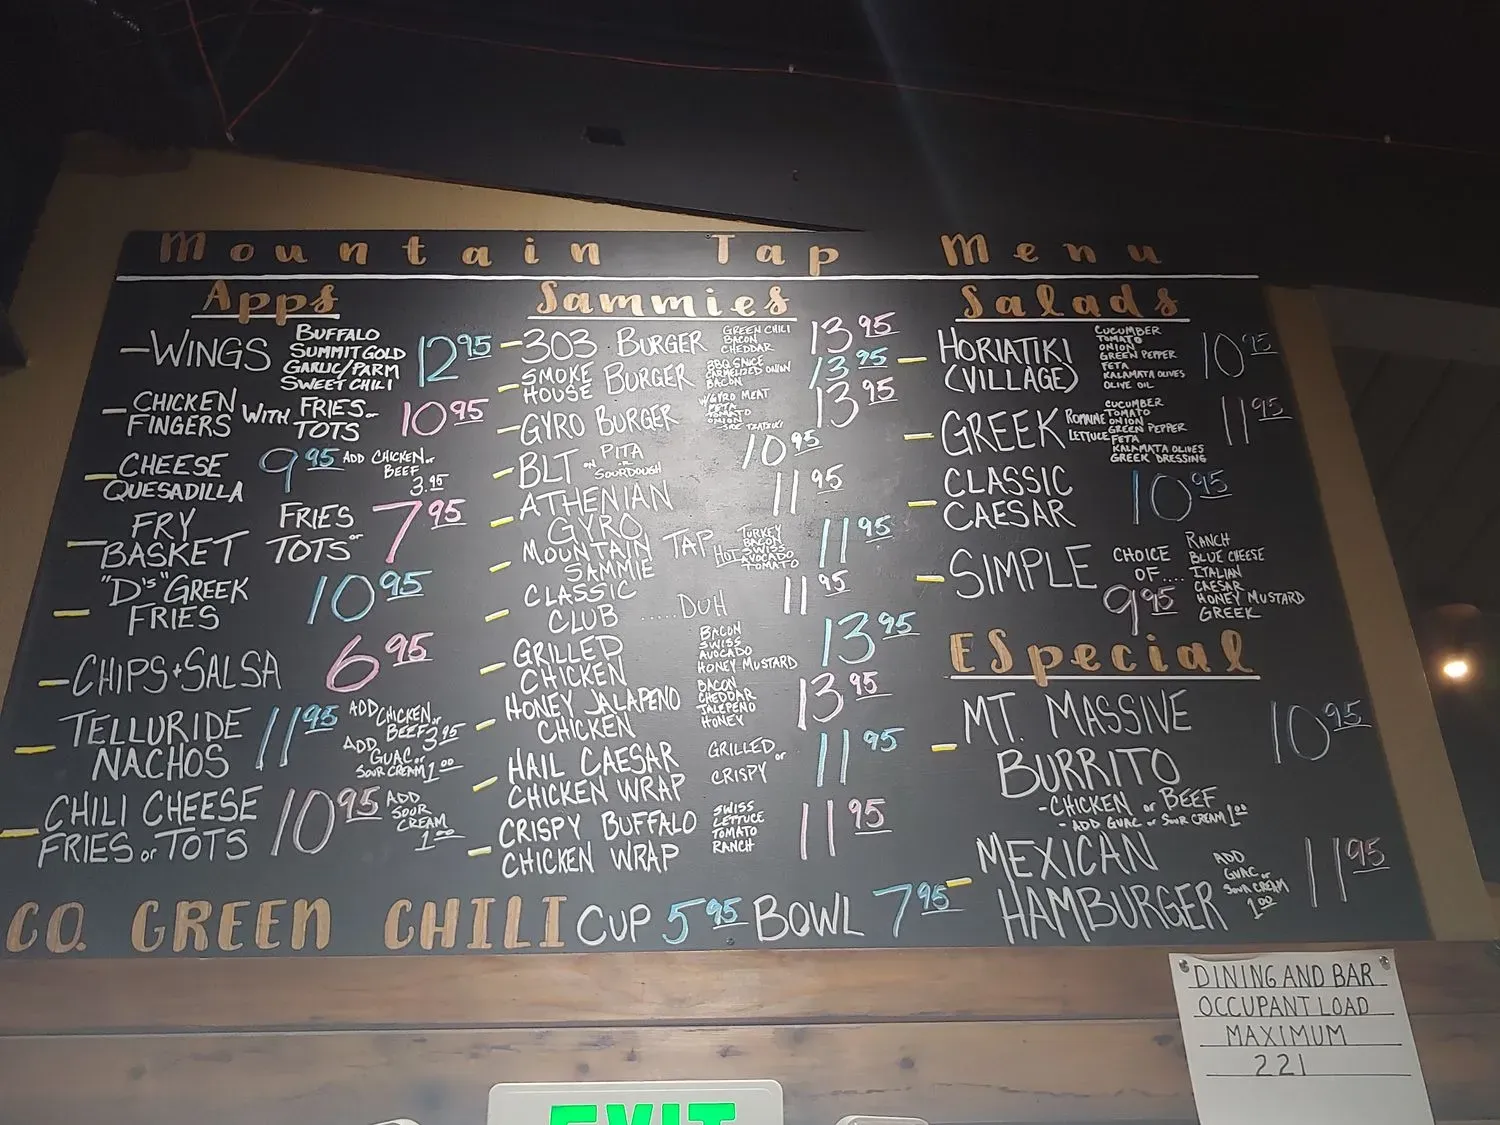 Mountain Tap Menu
Apps
- WINGS BUFFALO 12 95
SUMMIT GOLD
GARLIC/PARM
SWEET CHILI
- CHICKEN FINGERS WITH FRIES or TOTS 10 95
- CHEESE QUESADILLA 9 95 ADD CHICKEN or BEEF 3.95
- FRY BASKET FRIES or TOTS 7 95
- "D's" GREEK FRIES 10 95
- CHIPS + SALSA 6 95
- TELLURIDE NACHOS 11 95 ADD CHICKEN or BEEF 3 95
ADD GUAC or SOUR CREAM 1 00
- CHILI CHEESE FRIES or TOTS 10 95 ADD SOUR CREAM 1 00
Sammies
- 303 BURGER GREEN CHILI 13 95
BACON
CHEDDAR
- SMOKE HOUSE BURGER BBQ SAUCE 13 95
CARMELIZED ONION
BACON
- GYRO BURGER W/GYRO MEAT 13 95
FETA
TOMATO
ONION
SIDE TZATZIKI
- BLT ON PITA or SOURDOUGH 10 95
- ATHENIAN GYRO 11 95
- MOUNTAIN TAP SAMMIE HOT TURKEY 11 95
BACON
SWISS
AVOCADO
TOMATO
- CLASSIC CLUB .....DUH 11 95
- GRILLED CHICKEN BACON 13 95
SWISS
AVOCADO
HONEY MUSTARD
- HONEY JALAPENO CHICKEN BACON 13 95
CHEDDAR
JALEPENO
HONEY
- HAIL CAESAR CHICKEN WRAP GRILLED or CRISPY 11 95
- CRISPY BUFFALO CHICKEN WRAP SWISS 11 95
LETTUCE
TOMATO
RANCH
Salads
- HORIATIKI (VILLAGE) CUCUMBER 10 95
TOMATO
ONION
GREEN PEPPER
FETA
KALAMATA OLIVES
OLIVE OIL
- GREEK ROMAINE LETTUCE CUCUMBER 11 95
TOMATO
ONION
GREEN PEPPER
FETA
KALAMATA OLIVES
GREEK DRESSING
- CLASSIC CAESAR 10 95
- SIMPLE CHOICE OF.... 9 95
RANCH
BLUE CHEESE
ITALIAN
CAESAR
HONEY MUSTARD
GREEK
ESpecial
- MT. MASSIVE BURRITO 10 95
- CHICKEN or BEEF
- ADD GUAC or SOUR CREAM 1 00
- MEXICAN HAMBURGER ADD GUAC or SOUR CREAM 1 00 11 95
CO. GREEN CHILI CUP 5 95 BOWL 7 95
DINING AND BAR
OCCUPANT LOAD
MAXIMUM
221
EXIT